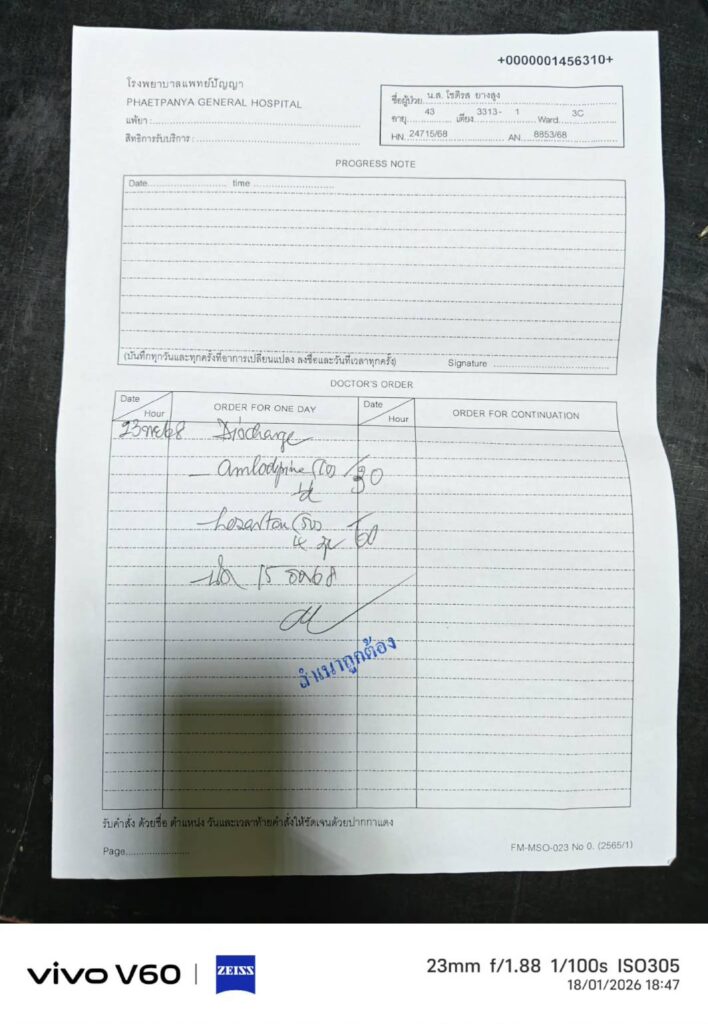 +0000001456310+
โรงพยาบาลแพทย์ปัญญา
PHAETPANYA GENERAL HOSPITAL
แพ้ยา :
สิทธิการรับบริการ :
ชื่อผู้ป่วย น.ส. โชติรส ยางสูง
อายุ 43 เตียง 3313- 1 Ward 3C
HN. 24715/68 AN. 8853/68
PROGRESS NOTE
Date time
(บันทึกทุกวันและทุกครั้งที่อาการเปลี่ยนแปลง ลงชื่อและวันที่เวลาทุกครั้ง) Signature
DOCTOR'S ORDER
Date Hour ORDER FOR ONE DAY Date Hour ORDER FOR CONTINUATION
Discharge
- Amlodipine 30
- Losartan 60
15 ธค68
สำเนาถูกต้อง
รับคำสั่ง ด้วยชื่อ ตำแหน่ง วันและเวลาท้ายคำสั่งให้ชัดเจนด้วยปากกาแดง
Page
FM-MSO-023 No 0. (2565/1)
vivo V60 | ZEISS
23mm f/1.88 1/100s ISO305
18/01/2026 18:47